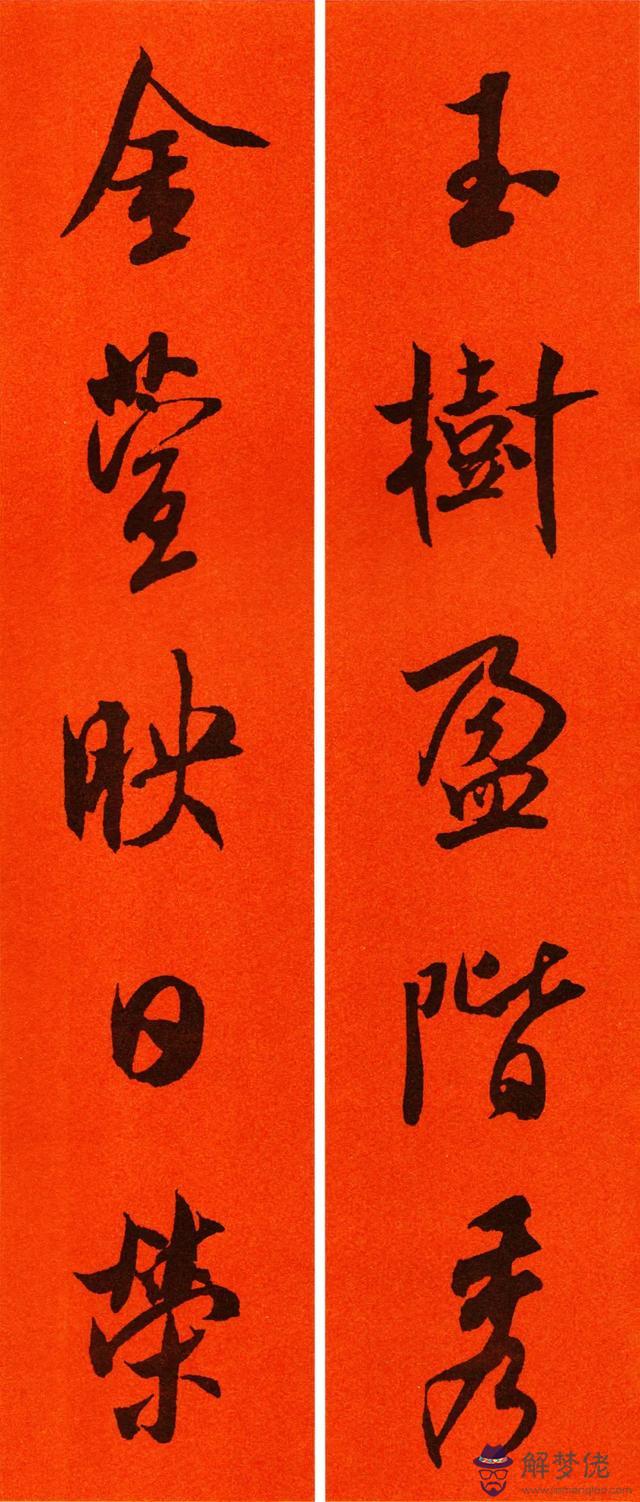 玉樹盈階秀
金萱映日榮
解梦佬